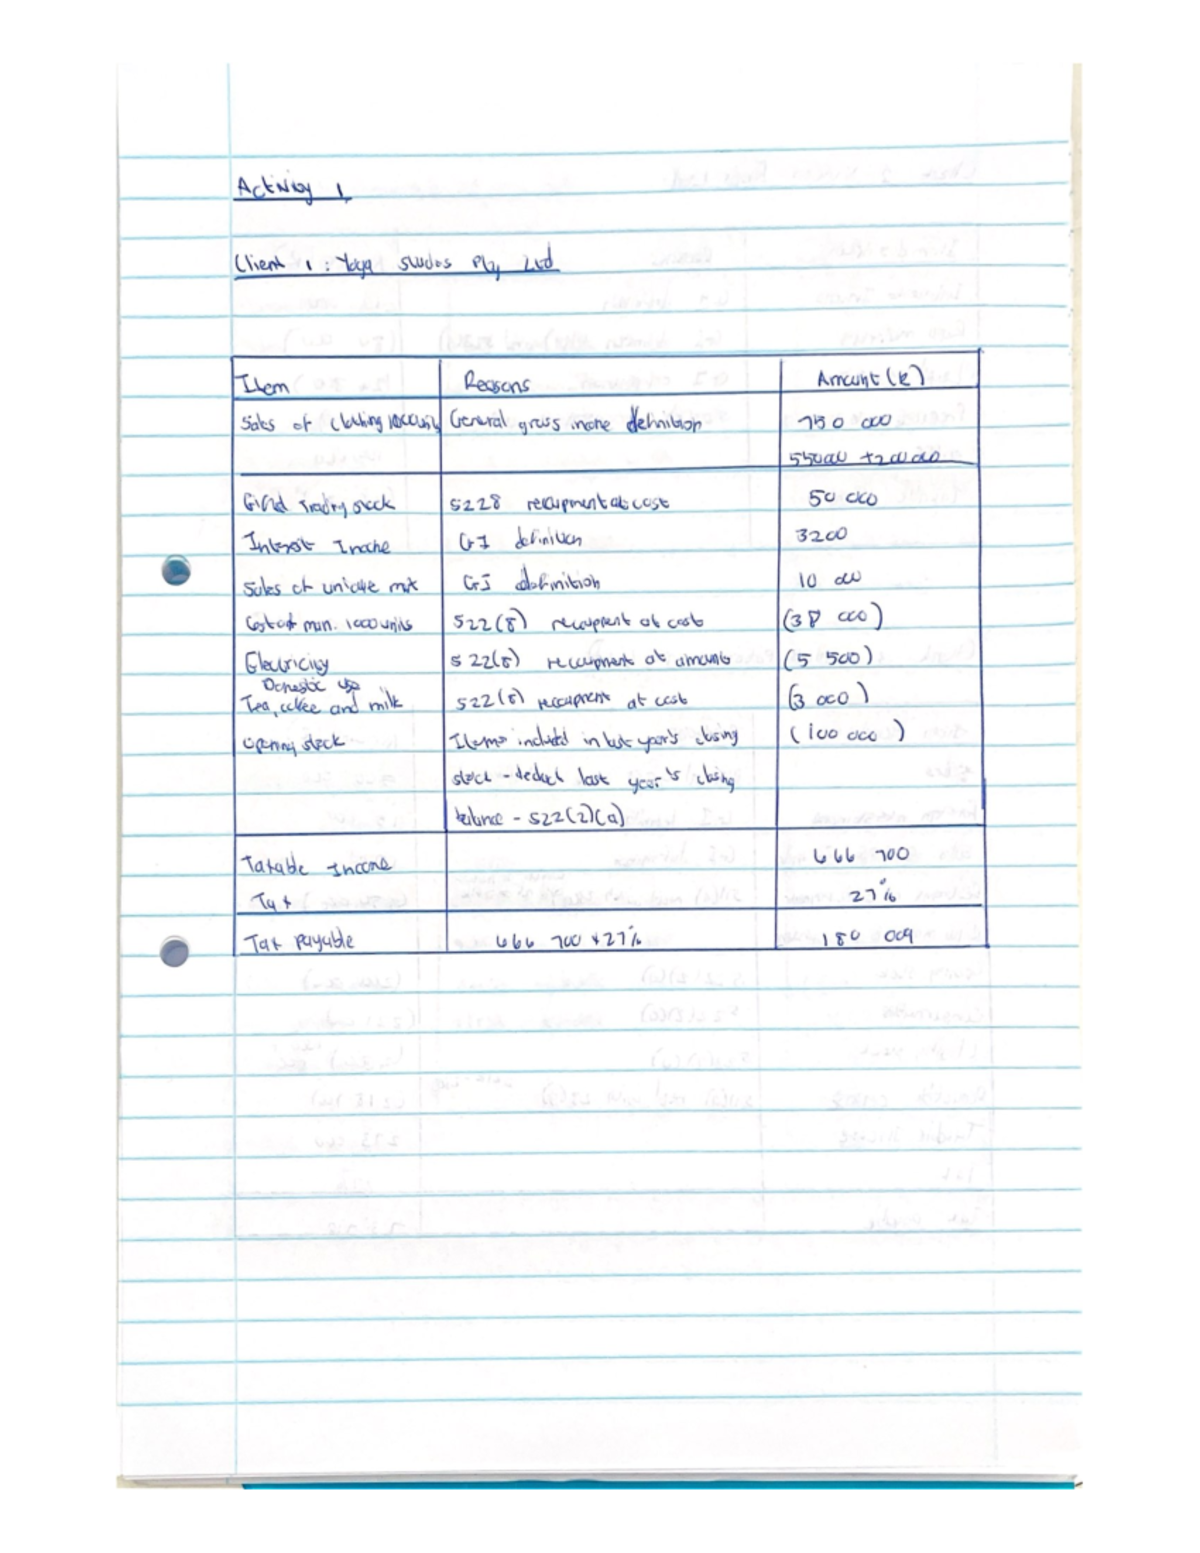 Activity 1
Client 1: Yoga Studos Pty Ltd
Item Reasons Amount (R)
Sales of clothing 1000 units General gross income definition 750 000
55000 + 200 000
Gifted Trading stock S228 recoupment at cost 50 000
Interest Income GI definition 3200
Sales of unique mat GI definition 10 000
Cost of man. 1000 units S22(8) recoupment at cost (38 000)
Electricity S22(8) recoupment at amounts (5 500)
Domestic use
Tea, coffee and milk S22(8) recoupment at cost (3 000)
Opening stock Items included in last year's closing (100 000)
stock - deduct last year's closing
balance - S22(2)(a)
Taxable Income 666 700
Tax 27%
Tax payable 666 700 x 27% 180 009